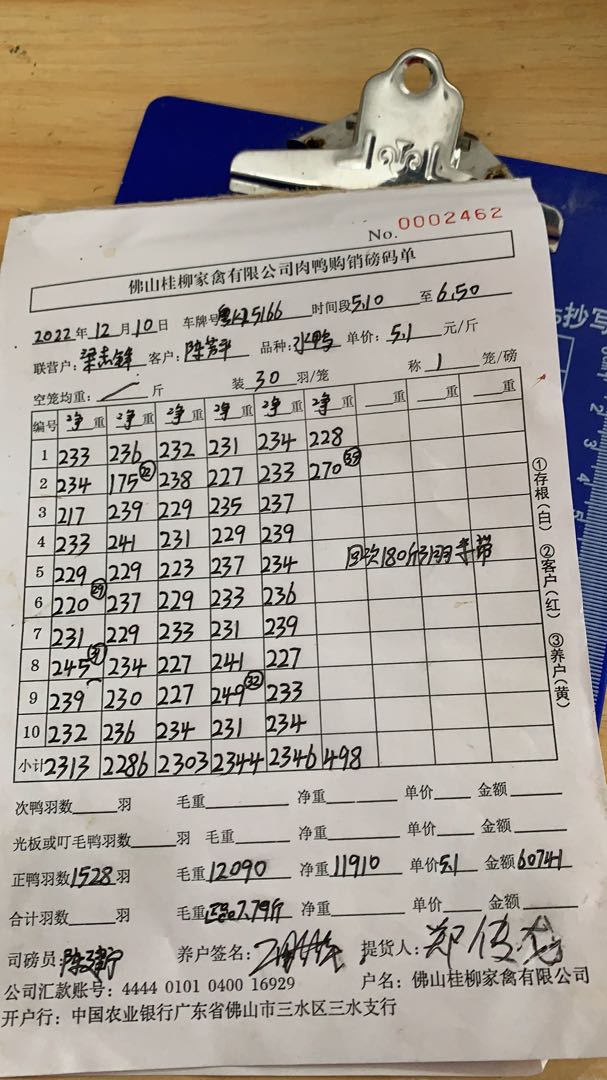 No. 0002462
佛山桂柳家禽有限公司肉鸭购销磅码单
2022年12月10日 车牌号 5166 时间段5.10 至6.50
联营户: 梁志锋 客户: 陈芳平 品种: 水鸭 单价: 5.1 元/斤
空笼均重: / 斤 装 30 羽/笼 称 1 笼/磅
编号 净重 净重 净重 净重 净重 净重 重 重 重
1 233 236 232 231 234 228
2 234 175 22 238 227 233 270 35
3 217 239 229 235 237
4 233 241 231 229 239
5 229 229 223 237 234 180斤
6 220 29 237 229 233 236
7 231 229 233 231 239
8 245 31 234 227 241 227
9 239 230 227 249 32 233
10 232 236 234 231 234
小计 2313 2286 2303 2344 2346 498
①存根(白) ②客户(红) ③养户(黄)
次鸭羽数 羽 毛重 净重 单价 金额
光板或叮毛鸭羽数 羽 毛重 净重 单价 金额
正鸭羽数1528羽 毛重12090 净重11910 单价5.1 金额60741
合计羽数 羽 毛重 7.79斤 净重 单价 金额
司磅员: 养户签名: 提货人: 郑俊龙
公司汇款账号: 4444 0101 0400 16929 户名: 佛山桂柳家禽有限公司
开户行: 中国农业银行广东省佛山市三水区三水支行
抄写